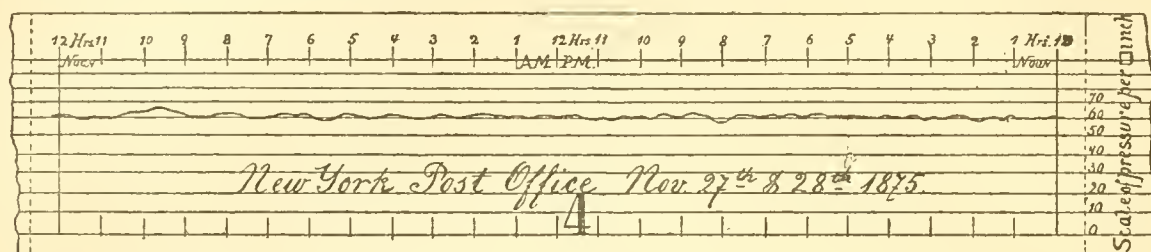 12 Hrs 11 10 9 8 7 6 5 4 3 2 1 12 Hrs 11 10 9 8 7 6 5 4 3 2 1 Hrs. 12
Noon AM P.M. Noon
70
60
50
40
30
20
10
0
Scale of pressure per □ inch
New York Post Office Nov. 27th & 28th 1875.
4